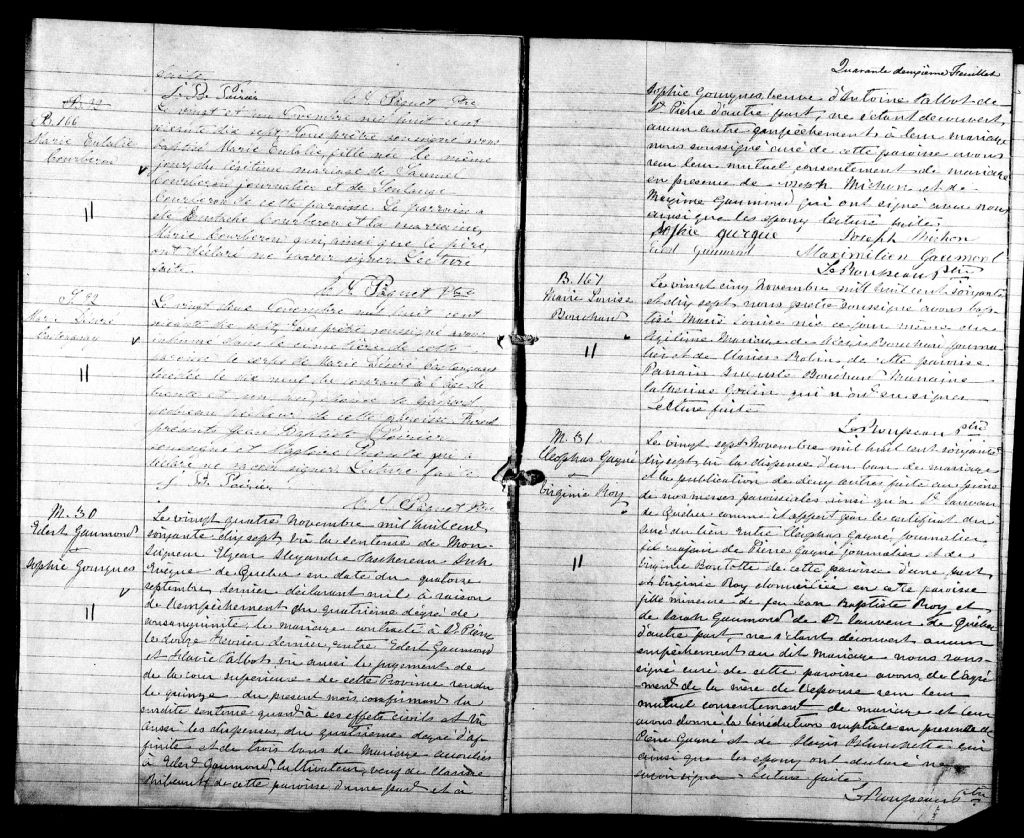 Suite
J. Bte Poirier
Ptre
B. 166
Marie Eulalie
Courberon
Le vingt et un Novembre mil huit cent
soixante dix sept, Nous prêtre soussigné avons
baptisé Marie Eulalie, fille née le même
jour, du légitime mariage de
Courberon journalier et de Soulange
Courberon de cette paroisse. Le parrain a
été Eustache Courberon et la marraine,
Marie Courberon qui, ainsi que le père,
ont déclaré ne savoir signer. Lecture
faite.
Ptre
Marie Désiré
Le vingt deux Novembre mil huit cent
soixante dix sept, Nous prêtre soussigné avons
inhumé dans le cimetière de cette
paroisse le corps de Marie Désiré
décédée le dix neuf du courant à l'âge de
trente et un
de cette paroisse. Furent
présents Jean Baptiste Poirier
soussigné et qui a
déclaré ne savoir signer. Lecture faite
J. Bt. Poirier
Ptre
M. 30
Edert Gaumond
&
Sophie Gourgues
Le vingt quatre Novembre mil huit cent
soixante dix sept vu la sentence de Mon-
seigneur Elzear Alexandre Taschereau Arch
Evêque de Québec en date du quatorze
septembre dernier déclarant nul à raison
de l'empêchement du quatrième degré de
consanguinité, le mariage contracté à St. Pierre
le douze Fevrier dernier, entre Edert Gaumond
et Talbot, vu aussi le jugement de
de la cour superieure de cette Province rendu
le quinze du present mois confirmant la
susdite sentence quand à ses effets civils et vu
aussi les dispenses du quatrieme degré d'af-
finité et de trois bans de mariage accordées
à Edert Gaumond, cultivateur, veuf de Clarisse
Thibault de cette paroisse d'une part et à
Quarante deuxième Feuillet
Sophie Gourgues veuve d'Antoine Talbot de
St Pierre d'autre part, ne s'étant découvert
aucun autre empêchement à leur mariage
nous soussigné curé de cette paroisse avons
recu leur mutuel consentement de mariage
en presence de Joseph Michon et de
Maxime Gaumond qui ont signé avec nous
ainsi que les epoux lecture faite.
Sophie gurgue Joseph Michon
Edert Gaumond Maximilien Gaumont
ptre
B. 167
Marie Louise
Bouchard
Le vingt cinq Novembre mil huit cent soixante
et dix sept nous prêtre soussigné avons bap-
tisé Marie Louise née ce jour même du
légitime mariage de Bouchard journa-
lier et de Clarisse de cette paroisse
Parrain Auguste Bouchard Marraine
Catherine qui n'ont su signer
Lecture faite
ptre
M. 31
Cleophas Gagné
&
Virginie Roy
Le vingt sept Novembre mil huit cent soixante
dix sept, vu la dispense d'un ban de mariage
et la publication de deux autres faite au prone
de nos messes paroissiales ainsi qu'à St. Sauveur
de Québec comme il appert par le certificat du
curé du lieu entre Cleophas Gagné journalier
fils majeur de Pierre Gagné journalier et de
Virginie Boulotte de cette paroisse d'une part
et Virginie Roy domiciliée en cette paroisse
fille mineure de feu Jean Baptiste Roy et
de Sarah Gaumond de St Sauveur de Québec
d'autre part, ne s'étant découvert aucun
empêchement au dit mariage nous sous-
signé curé de cette paroisse avons de l'agré-
ment de la mère de l'épouse recu leur
mutuel consentement de mariage et leur
avons donné la bénédiction nuptiale en presence de
Pierre Gagné et de Blanchette qui
ainsi que les epoux ont declaré ne
savoir signer. Lecture faite
ptre